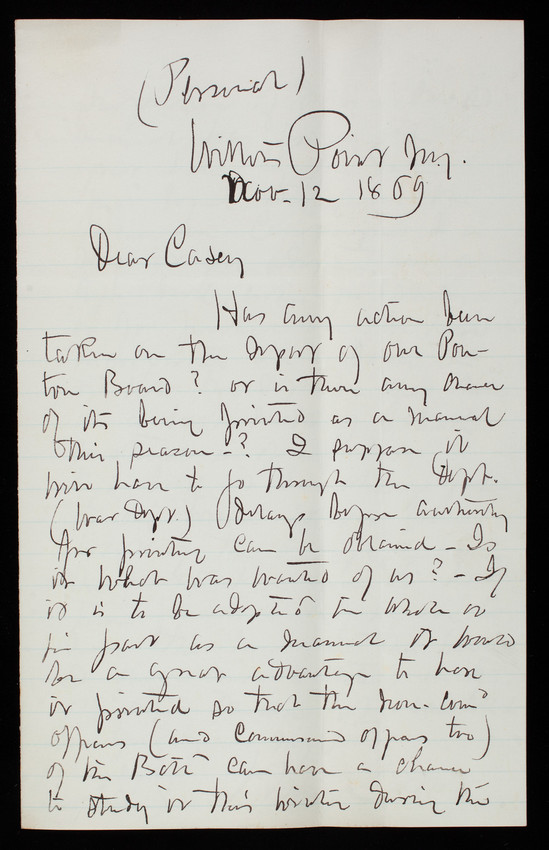 (Personal)
Willets Point N.Y.
Nov. 12 1869
Dear Casey
Has any action been
taken on the report of our Pon-
ton Board? or is there any chance
of its being printed as a manual
this season -? I suppose it
will have to go through the Dept.
(War Dept.) delays before authority
for printing can be obtained - Is
it what was wanted of us? - If
it is to be adopted in whole or
in part as a manual it would
be a great advantage to have
it printed so that the non-comd
officers (and Commissioned officers too)
of the Battn can have a chance
to study it this winter during the